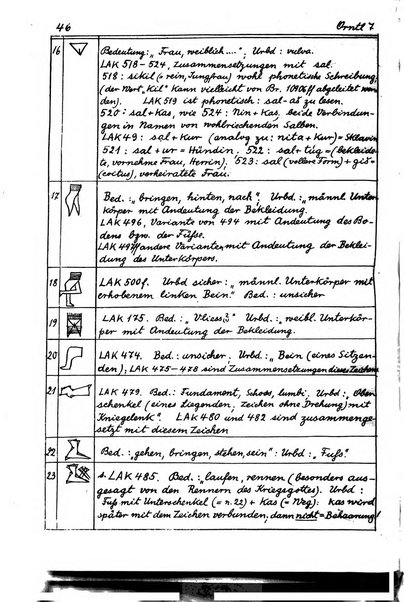 46 Orntl 7
16 Bedeutung: „Frau, weiblich....". Urbd: vulva.
LAK 518-524, Zusammensetzungen mit sal.
518: sikil (= rein, Jungfrau) wohl phonetische Schreibung
(der Wert „Kil" kann vielleicht von Br. abgeleitet wer-
den). LAK 519 ist phonetisch: sal-aš zu lesen.
520: sal + Kas, wie 524: Nin + Kas, beide Verbindun-
gen in Namen von wohlriechenden Salben.
LAK 49: sal + Kur (analog zu: nita + Kur) = Sklavin
521: sal + ur = Hündin. 522: sal + túg = (bekleide-
te, vornehme Frau, Herrin). 523: sal (vollere Form) + giš =
(coitus), verheiratete Frau.
17 Bed.: „bringen, hinten, nach". Urbd: „männl. Unter-
körper mit Andeutung der Bekleidung.
LAK 496, Variante von 494 mit Andeutung des Bo-
dens bzw. der Füße.
LAK 497 andere Variante, mit Andeutung der Beklei-
dung des Unterkörpers.
18 LAK 500f. Urbd sicher: „männl. Unterkörper mit
erhobenem linken Bein." Bed: unsicher
19 LAK 175. Bed.: „Vlies"? Urbd: „weibl. Unterkör-
per mit Andeutung der Bekleidung.
20 LAK 474. Bed.: unsicher. Urbd.: „Bein (eines Sitzen-
den), LAK 475-478 sind Zusammensetzungen dieses Zeichens
21 LAK 479. Bed: Fundament, Schoss, lumbi. Urbd: „Ober-
schenkel (eines Liegenden, Zeichen ohne Drehung) mit
Kniegelenk". LAK 480 und 482 sind zusammenge-
setzt mit diesem Zeichen
22 Bed.: „gehen, bringen, stehen, sein": Urbd: „Fuß".
23 s. LAK 485. Bed.: „laufen, rennen (besonders aus-
gesagt von den Rennern des Kriegsgottes). Urbd:
Fuß mit Unterschenkel (= n. 22) + Kas (= Weg): Kas wird
später mit dem Zeichen verbunden, dann nicht = Behaarung!